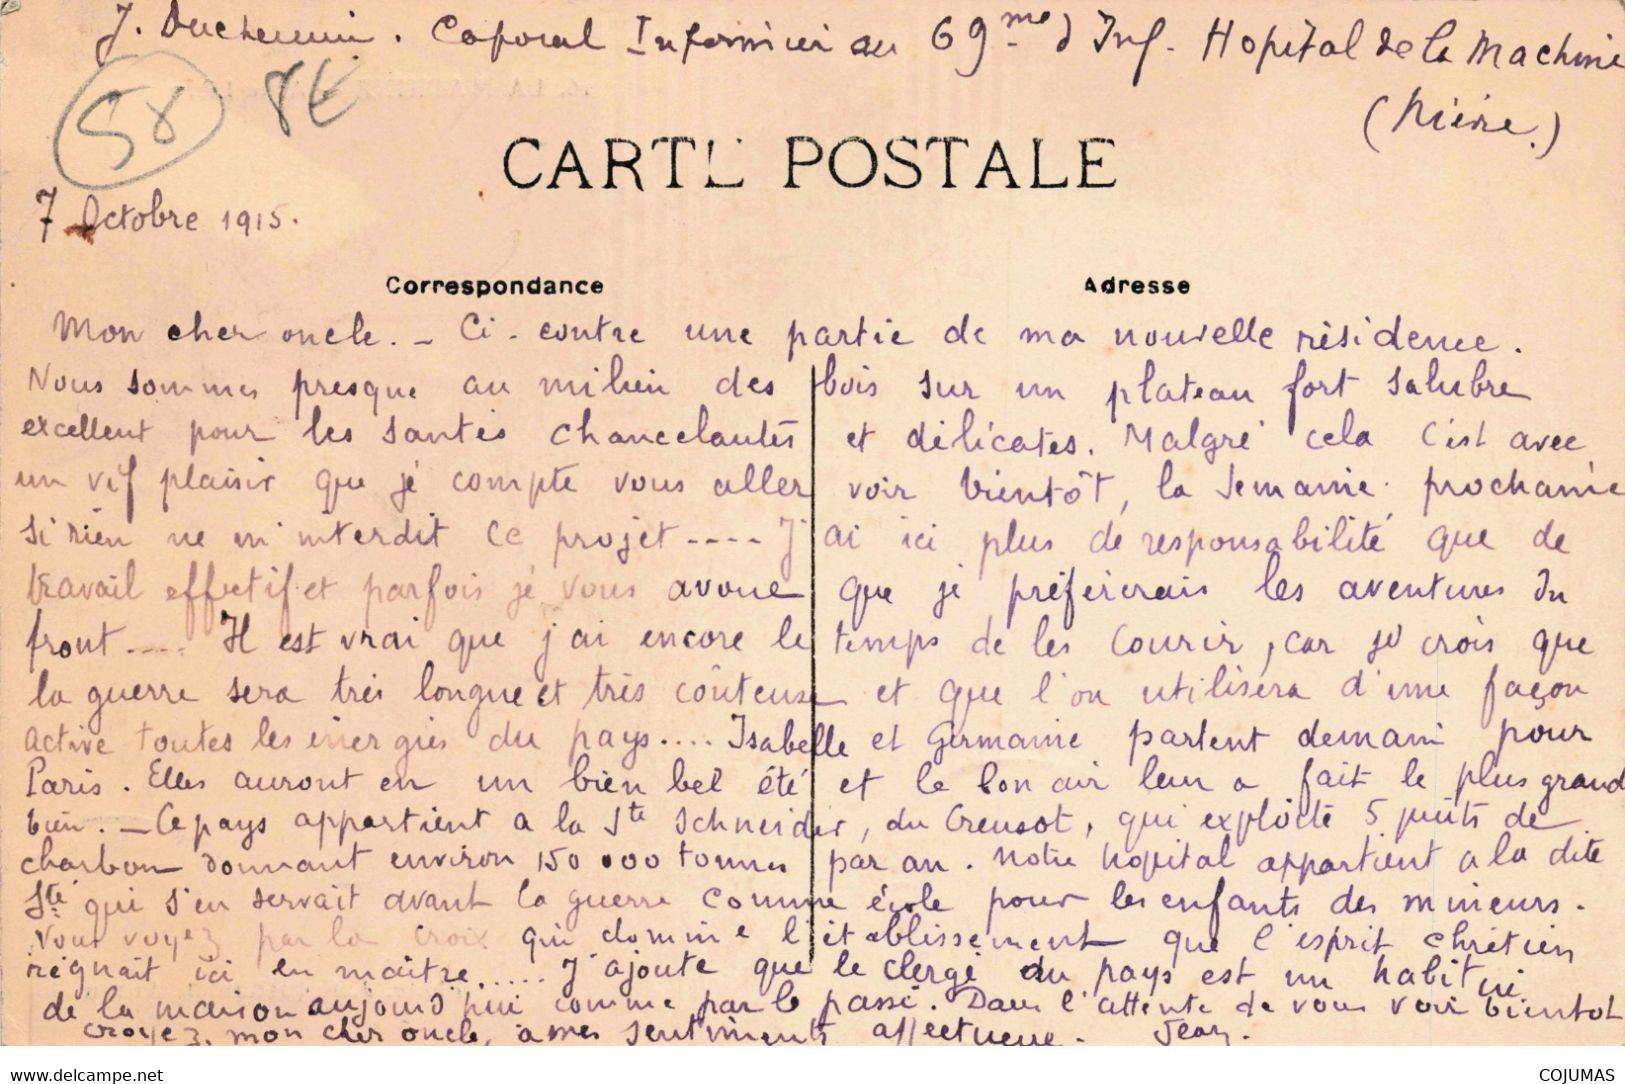 J. Duchemin. Caporal Infirmier au 69me d'Inf. Hopital de la Machine
(Nièvre.)
58 8€
CARTE POSTALE
7 Octobre 1915.
Correspondance Adresse
Mon cher oncle. - Ci-contre une partie de ma nouvelle résidence.
Nous sommes presque au milieu des bois sur un plateau fort salubre
excellent pour les santés chancelantes et délicates. Malgré cela c'est avec
un vif plaisir que je compte vous aller voir bientôt, la semaine prochaine
si rien ne m'interdit ce projet.... J'ai ici plus de responsabilité que de
travail effectif et parfois je vous avoue que je préfèrerais les aventures du
front.... Il est vrai que j'ai encore le temps de les courir, car je crois que
la guerre sera très longue et très coûteuse et que l'on utilisera d'une façon
active toutes les énergies du pays.... Isabelle et Germaine partent demain pour
Paris. Elles auront eu un bien bel été et le bon air leur a fait le plus grand
bien. - Ce pays appartient à la Sté Schneider, du Creusot, qui exploite 5 puits de
charbon donnant environ 150 000 tonnes par an. Notre hopital appartient à la dite
Sté qui s'en servait avant la guerre comme école pour les enfants des mineurs.
Vous voyez par la croix qui domine l'établissement que l'esprit chrétien
règnait ici en maître..... J'ajoute que le clergé du pays est un habitué
de la maison aujourd'hui comme par le passé. Dans l'attente de vous voir bientot
croyez, mon cher oncle, à mes sentiments affectueux. Jean.
www.delcampe.net COJUMAS